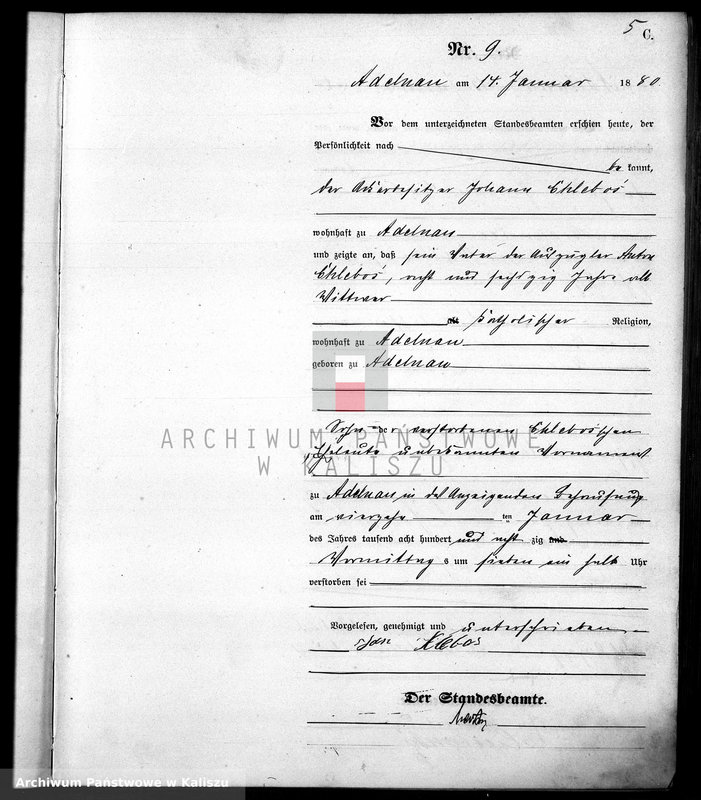 5
C.
Nr. 9.
Adelnau am 14. Januar 1880
Vor dem unterzeichneten Standesbeamten erschien heute, der
Persönlichkeit nach
be kannt,
der Ackerbesitzer Johann Chleboś
wohnhaft zu Adelnau
und zeigte an, daß sein Vater der Auszügler Anton
Chleboś, acht und sechszig Jahre alt
Wittwer
katholischer Religion,
wohnhaft zu Adelnau
geboren zu Adelnau
Sohn der verstorbenen Chlebosischen
Eheleute unbekannten Vornamens
zu Adelnau in des Anzeigenden Behausung
am vierzehn ten Januar
des Jahres tausend acht hundert und acht zig und
Vormittag s um sieben ein halb Uhr
verstorben sei
Vorgelesen, genehmigt und unterschrieben
Jan
Der Standesbeamte.
ARCHIWUM PAŃSTWOWE
W KALISZU
Archiwum Państwowe w Kaliszu